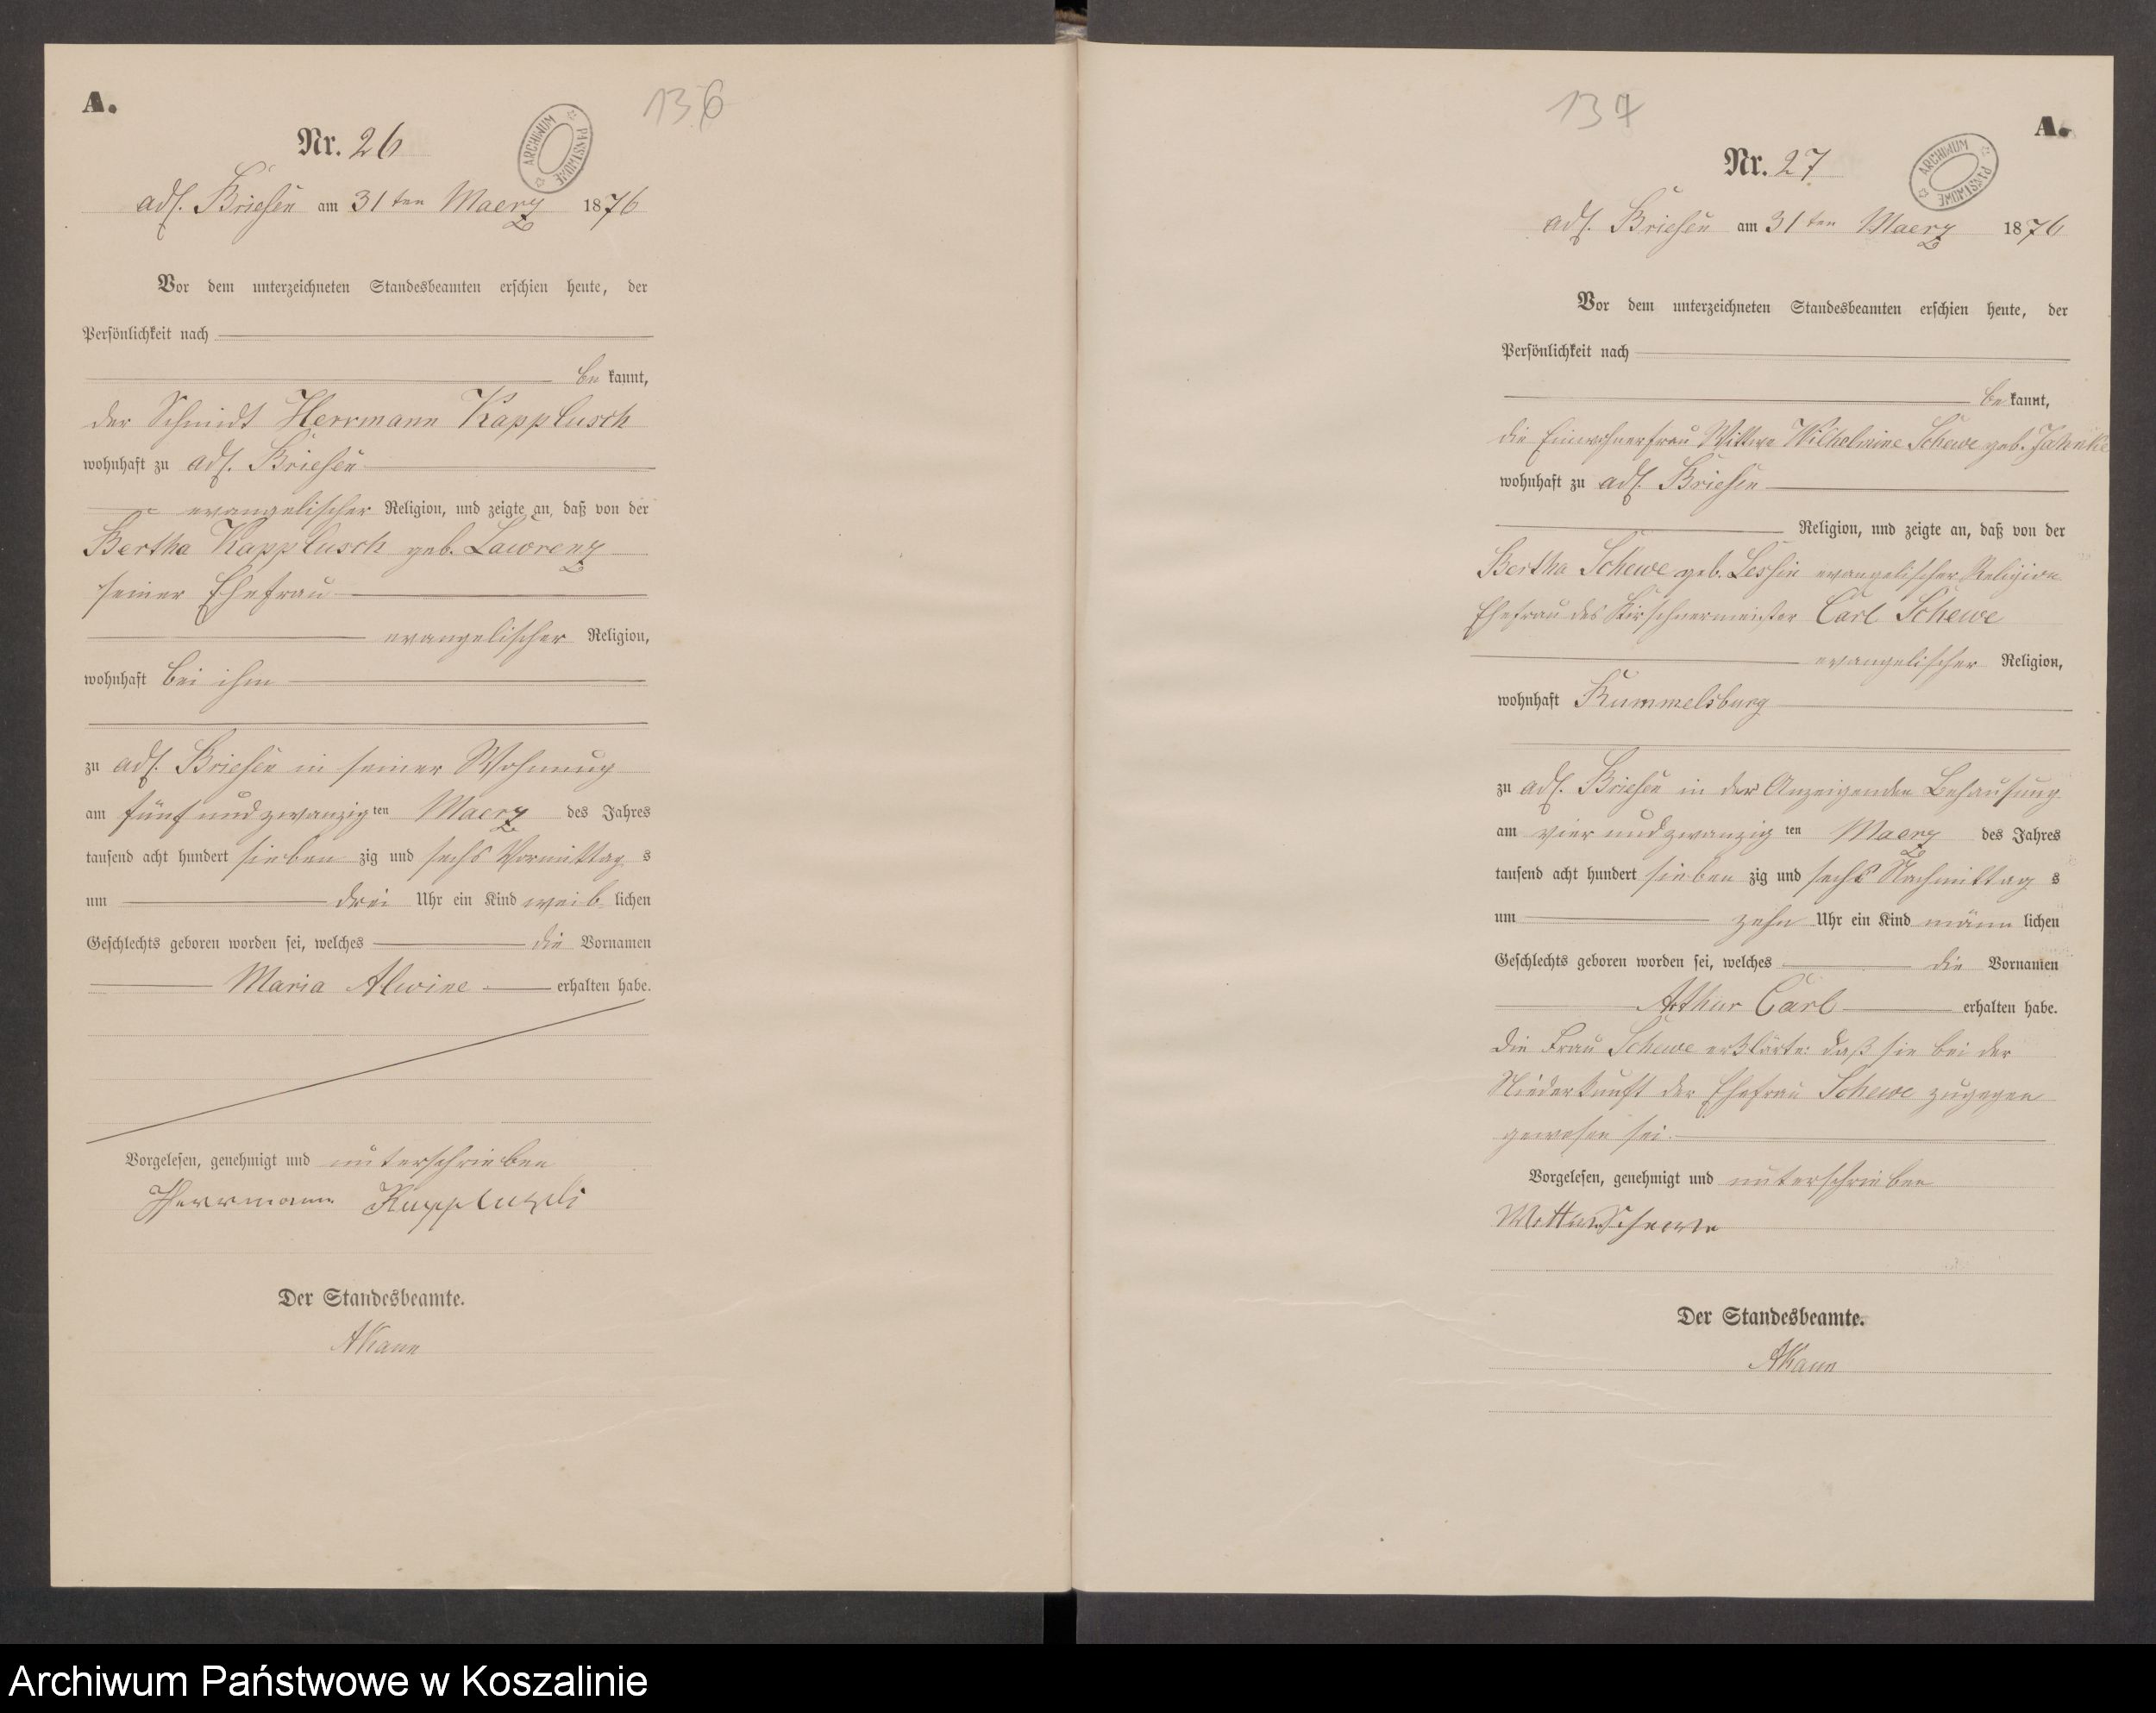 A.
136
Nr. 26
ARCHIWUM PAŃSTWOWE
adl. Briesen am 31ten Maerz 1876
Vor dem unterzeichneten Standesbeamten erschien heute, der
Persönlichkeit nach
be kannt,
der Schmidt Herrmann Kapplusch
wohnhaft zu adl. Briesen
evangelischer Religion, und zeigte an, daß von der
Bertha Kapplusch geb. Lawrenz
seiner Ehefrau
evangelischer Religion,
wohnhaft bei ihm
zu adl. Briesen in seiner Wohnung
am fünf und zwanzig ten Maerz des Jahres
tausend acht hundert sieben zig und sechs Vormittag s
um drei Uhr ein Kind weib lichen
Geschlechts geboren worden sei, welches die Vornamen
Maria Alwine erhalten habe.
Vorgelesen, genehmigt und unterschrieben
Herrmann Kapplusch
Der Standesbeamte.
AKann
137
A.
Nr. 27
ARCHIWUM PAŃSTWOWE
adl. Briesen am 31ten Maerz 1876
Vor dem unterzeichneten Standesbeamten erschien heute, der
Persönlichkeit nach
be kannt,
die Einwohnerfrau Wittwe Wilhelmine Schewe geb. Jahnke
wohnhaft zu adl. Briesen
Religion, und zeigte an, daß von der
Bertha Schewe geb. Lessin evangelischer Religion
Ehefrau des Kirschnermeister Carl Schewe
evangelischer Religion,
wohnhaft Rummelsburg
zu adl. Briesen in der Anzeigenden Behausung
am vier und zwanzig ten Maerz des Jahres
tausend acht hundert sieben zig und sechs Nachmittag s
um zehn Uhr ein Kind männ lichen
Geschlechts geboren worden sei, welches die Vornamen
Arthur Carl erhalten habe.
Die Frau Schewe erklärte: daß sie bei der
Niederkunft der Ehefrau Schewe zugegen
gewesen sei.
Vorgelesen, genehmigt und unterschrieben
Wittwe Schewe
Der Standesbeamte.
AKann
Archiwum Państwowe w Koszalinie